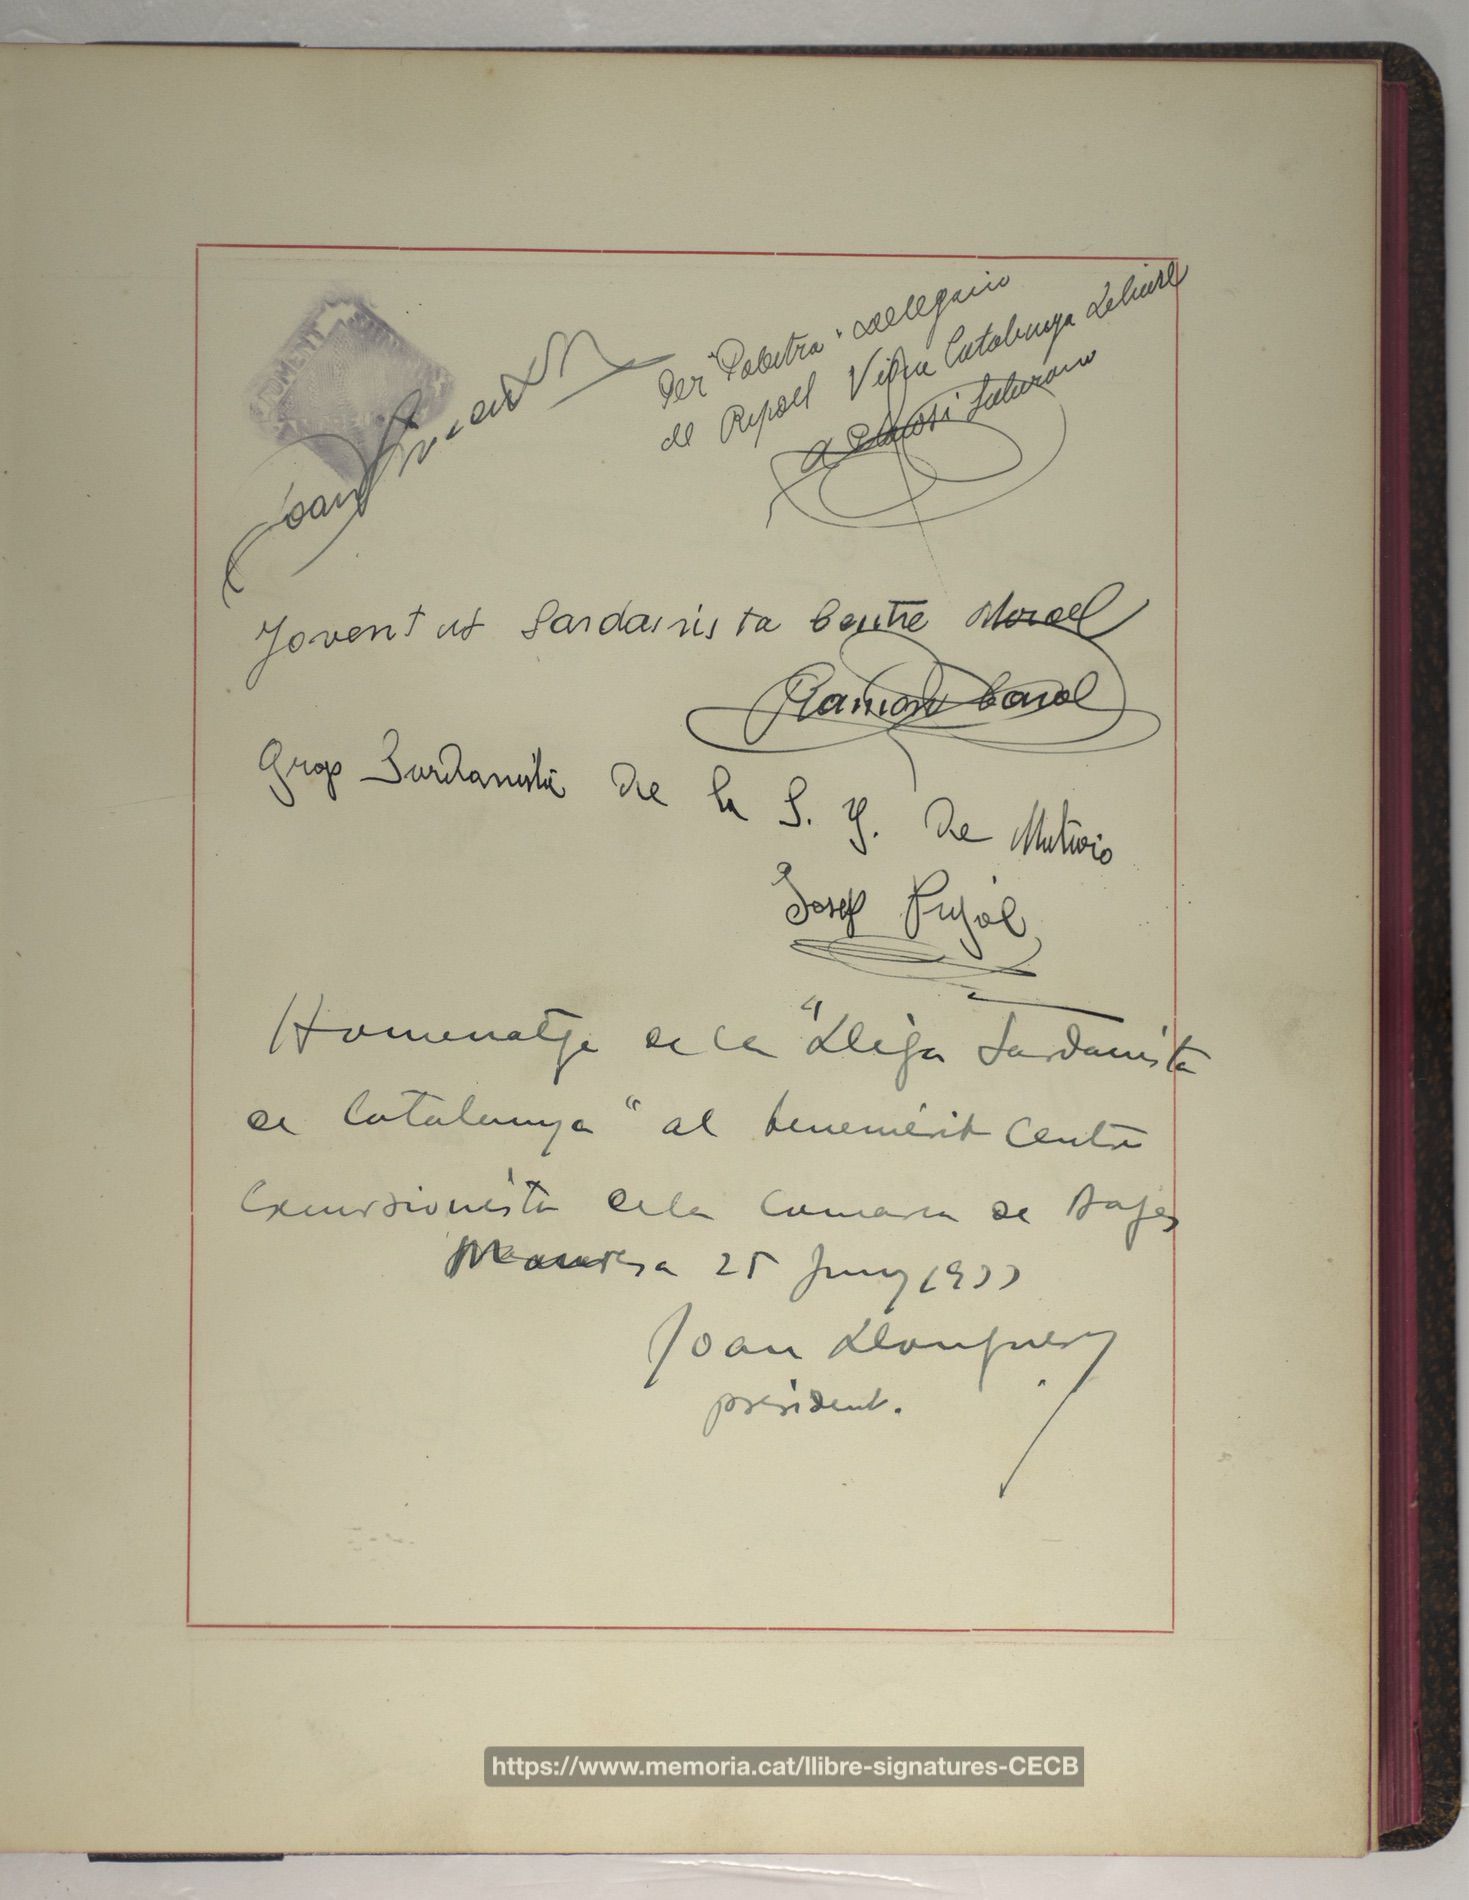 FOMENT
Joan
Per "Palestra" Delegació
de Ripoll Visca Catalunya Lliure
Joventut Sardanista Centre Moral
Ramon Carol
Grup Sardanista de la S. Y. de
Josep Pujol
Homenatge de la "Lliga Sardanista
de Catalunya" al benemèrit Centre
Excursionista de la Comarca de Bages
Manresa 25 Juny 1933
Joan Llongueres
president.
https://www.memoria.cat/llibre-signatures-CECB